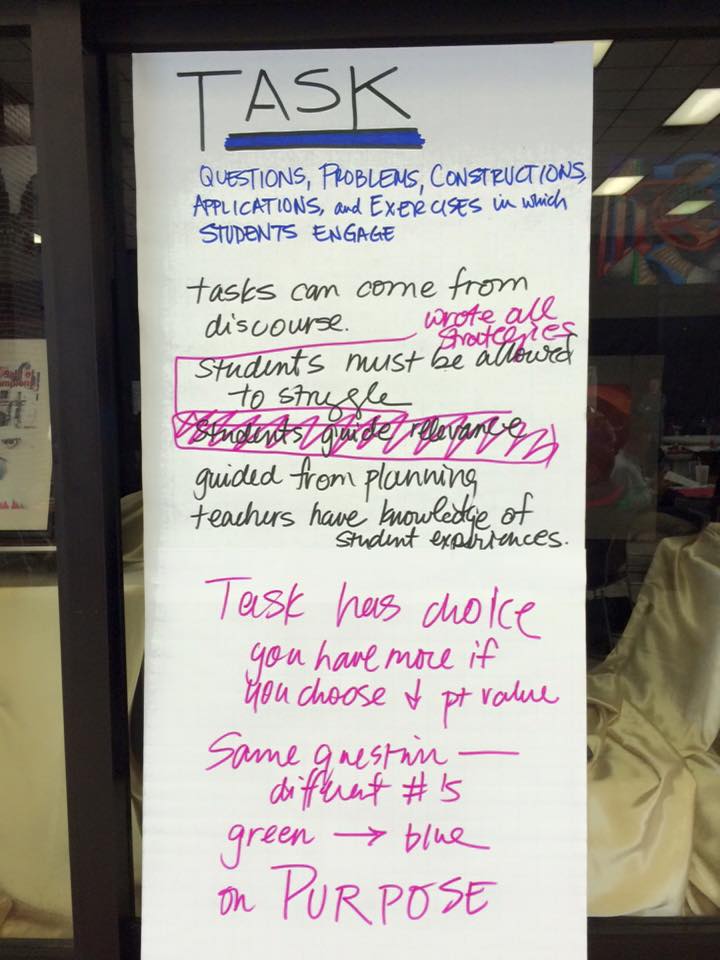 TASK
QUESTIONS, PROBLEMS, CONSTRUCTIONS,
APPLICATIONS, and EXERCISES in which
STUDENTS ENGAGE
tasks can come from
discourse.
wrote all
strategies
Students must be allowed
to struggle
Students guide relevance
guided from planning
teachers have knowledge of
student experiences.
Task has choice
you have more if
you choose ↓ pt value
Same question —
different #'s
green → blue
on PURPOSE